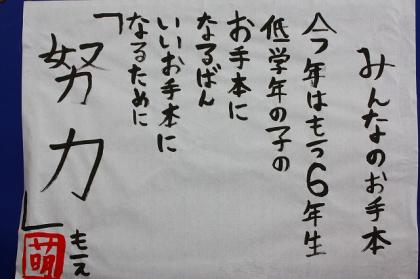 みんなのお手本
今年はもう6年生
低学年の子の
お手本に
なるばん
いいお手本に
なるために
「努力」
もえ
萌